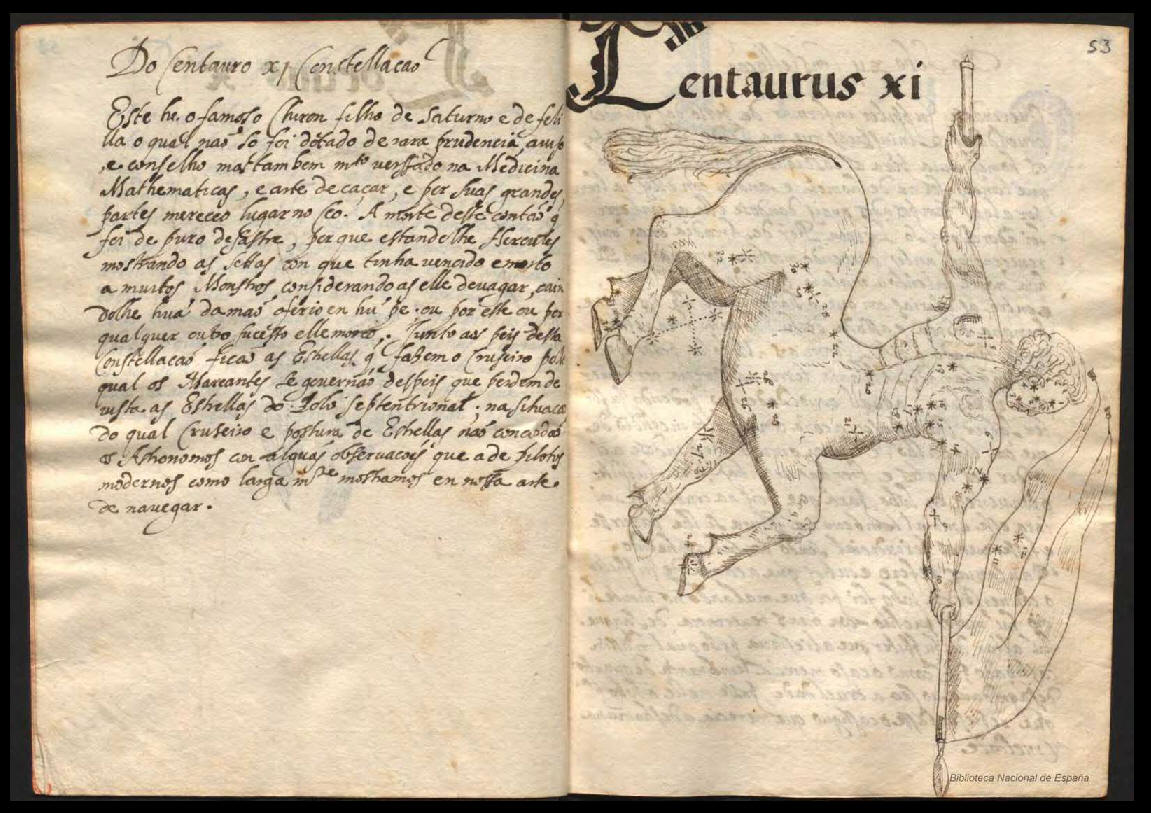 Do Centauro xj Constellacaõ
Este he o famoso Chiron filho de Saturno e de feli
lla o qual naõ so foi dotado de rara prudencia, auiso
, e conselho mas tambem mto versado na Medicina
Mathematicas, e arte de caçar, e per suas grandes
partes mereceo lugar no Ceo. A morte deste contaõ q̃
foi de puro desastre, per que estandolhe Hercules
mostrando as settas con que tinha vencido e morto
a muitos Monstros considerando as elle devagar, cain
dolhe huã da maõ o ferio en hũ pe. ou por este ou por
qualquer outro sucesso elle morto. Junto aos peis desta
Constellacaõ ficaõ as Estrellas q̃ fazem o Cruseiro pello
qual os Mareantes se governaõ despeis que perdem de
vista as Estrellas do Polo Septentrional. na situacaõ
do qual Cruseiro e postura de Estrellas naõ concordaõ
os Astronomos con alguas observacois que a de pilotos
modernos como larga mte mostramos en nossa arte
de navegar.
Centaurus xi
53
Biblioteca Nacional de España